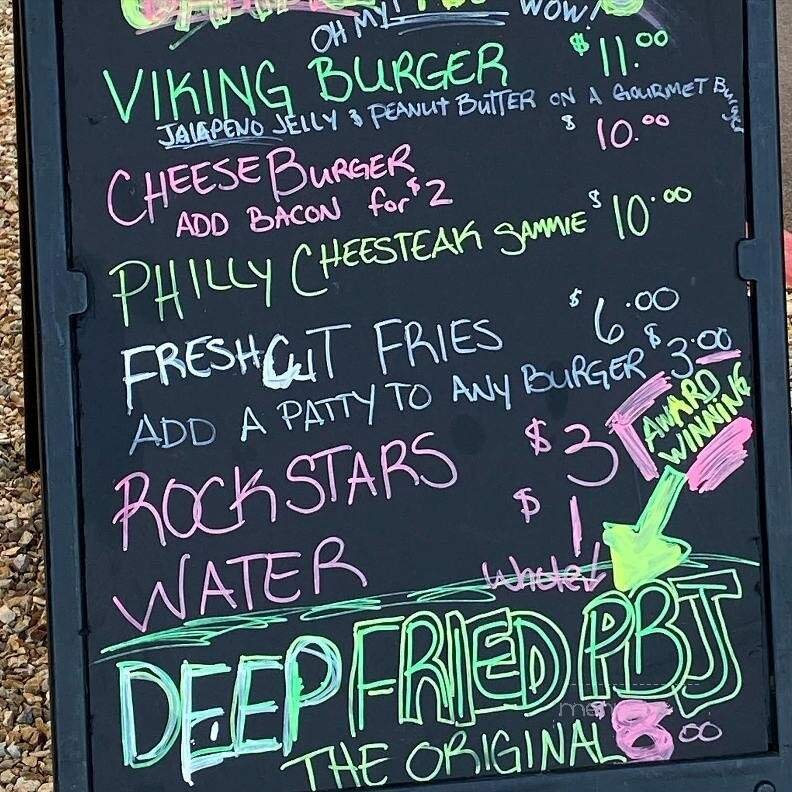 OH MY! WOW!
VIKING BURGER $11.00
JALAPENO JELLY & PEANUT BUTTER ON A GOURMET Burger
CHEESE BURGER $10.00
ADD BACON for $2
PHILLY CHEESTEAK SAMMIE $10.00
FRESH CUT FRIES $6.00
ADD A PATTY TO ANY BURGER $3.00
AWARD
WINNING
ROCKSTARS $3
WATER $1
Whole!
DEEP FRIED PBJ
THE ORIGINAL $8.00